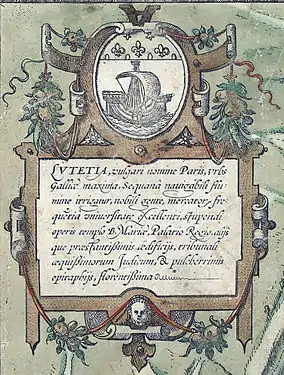 LVTETIA, vulgari nomine Paris, vrbs
Galliæ maxima, Sequana nauigabili flu
mine irrigatur, nobili gente, mercator, fre
quētia vniuersitate excellenti, stupendi
operis templo B. Mariæ, Palatio Regio, alijs
que præstantissimis ædificijs, tribunali
æquissimorum Judicum, & pulcherrimis
epitaphijs, florentissima